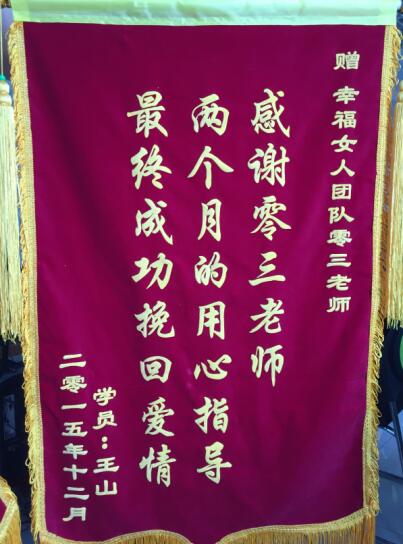 赠 幸福女人团队零三老师
感谢零三老师
两个月的用心指导
最终成功挽回爱情
学员：王山
二零一五年十二月